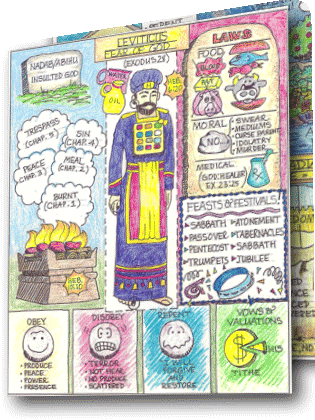 NADAB/ABIHU
INSULTED GOD
LEVITICUS
FEAR OF GOD
WATER
OIL
LAWS
FOOD
BLOOD
FAT
TRESPASS
(CHAP. 5)
SIN
(CHAP. 4)
PEACE
CHAP. 3)
MEAL
(CHAP. 2)
BURNT
(CHAP. 1)
HEB.
MORAL
NO...
• SWEAR
• MEDIUMS
• CURSE PARENT
• IDOLATRY
• MURDER
MEDICAL
(GOD: HEALER
EX. 23:25
FEASTS & FESTIVALS!
SABBATH
PASSOVER
PENTECOST
TRUMPETS
ATONEMENT
TABERNACLES
SABBATH
JUBILEE
OBEY
• PRODUCE
• PEACE
• POWER
• PRESENCE
DISOBEY
• TERROR
• NOT HEAR
• NO PRODUCE
• SCATTERED
REPENT
I WILL
FORGIVE
AND
RESTORE
VOWS &
VALUATIONS
HIS
TITHE